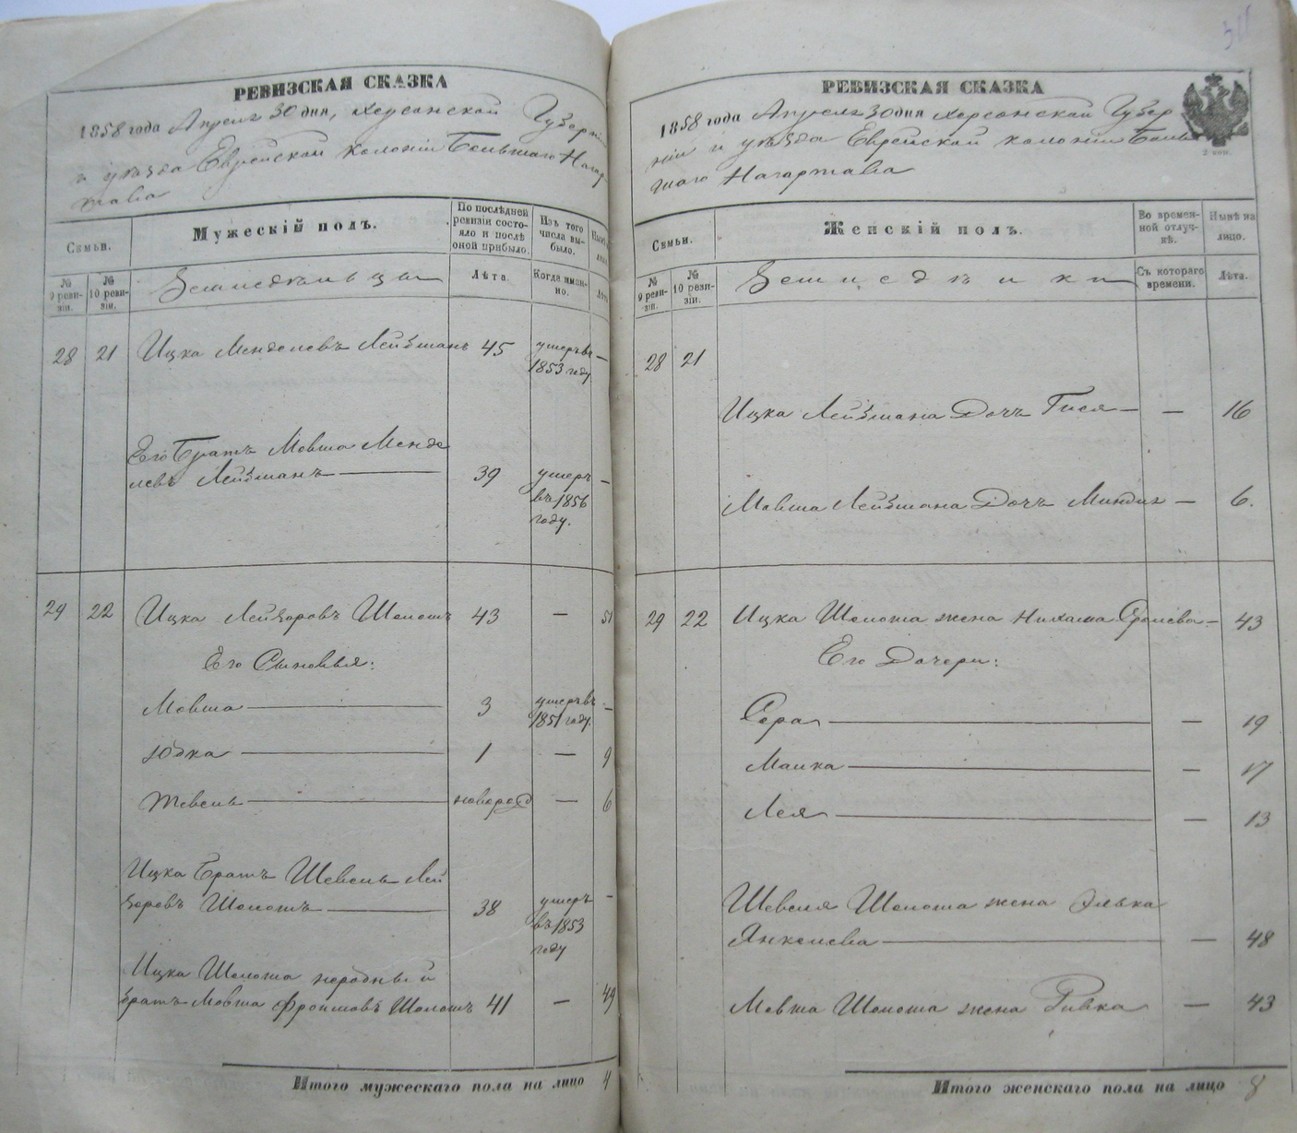 РЕВИЗСКАЯ СКАЗКА
1858 года Апреля 30 дня, Херсонской Губерніи
и уѣзда Еврейской колоніи Большаго Нагар-
тава
Семьи.
Мужескій полъ.
По послѣдней ревизіи состояло и послѣ оной прибыло.
Изъ того числа выбыло.
№ 9 ревизіи.
№ 10 ревизіи.
Земледѣльцы
Лѣта.
Когда именно.
28 21 Ицка Менделевъ Лейзманъ 45 умеръ въ 1853 году —
Его Братъ Мовша Менде
левъ Лейзманъ — 39 умеръ въ 1856 году. —
29 22 Ицка Лейзоровъ Шолотъ 43 — 51
Его Сыновья:
Мовша — 3 умеръ въ 1851 году. —
Юдка — 1 — 9
новорожд — 6
Ицка Братъ Шевель Лей
зоровъ Шолотъ — 38 умеръ въ 1853 году —
Ицка Шолота народный
братъ Мовша Фроимовъ Шолотъ 41 — 49
Итого мужескаго пола на лицо 4
РЕВИЗСКАЯ СКАЗКА
1858 года Апреля 30 дня Херсонской Губер
ніи и уѣзда Еврейской колоніи Боль
шаго Нагартава
2 коп.
Семьи.
Женскій полъ.
Во временной отлучкѣ.
Нынѣ на лицо.
№ 9 ревизіи.
№ 10 ревизіи.
Съ котораго времени.
Лѣта.
28 21
Ицка Лейзмана Дочь Гися — — 16
Мовша Лейзмана Дочь Миндля — 6.
29 22 Ицка Шолота жена Нихама — 43
Его Дочери:
Сора — — 19
Малка — — 17
Лея — — 13
Шевеля Шолота жена Элька
Янкелева — — 48
Мовша Шолота жена Ривка — 43
Итого женскаго пола на лицо 8